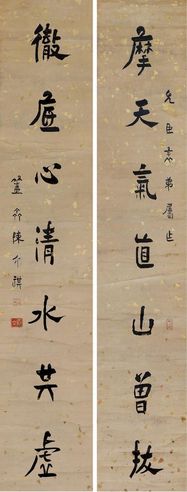 允臣弟屬正
摩天氣直山曾拔
徹底心清水共虛
簠齋陳介祺